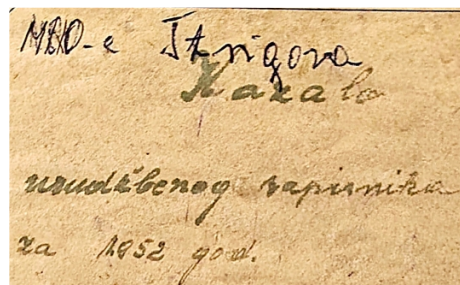 MBO-e Štrigova
Kazalo
urudžbenog zapisnika
za 1952 god.